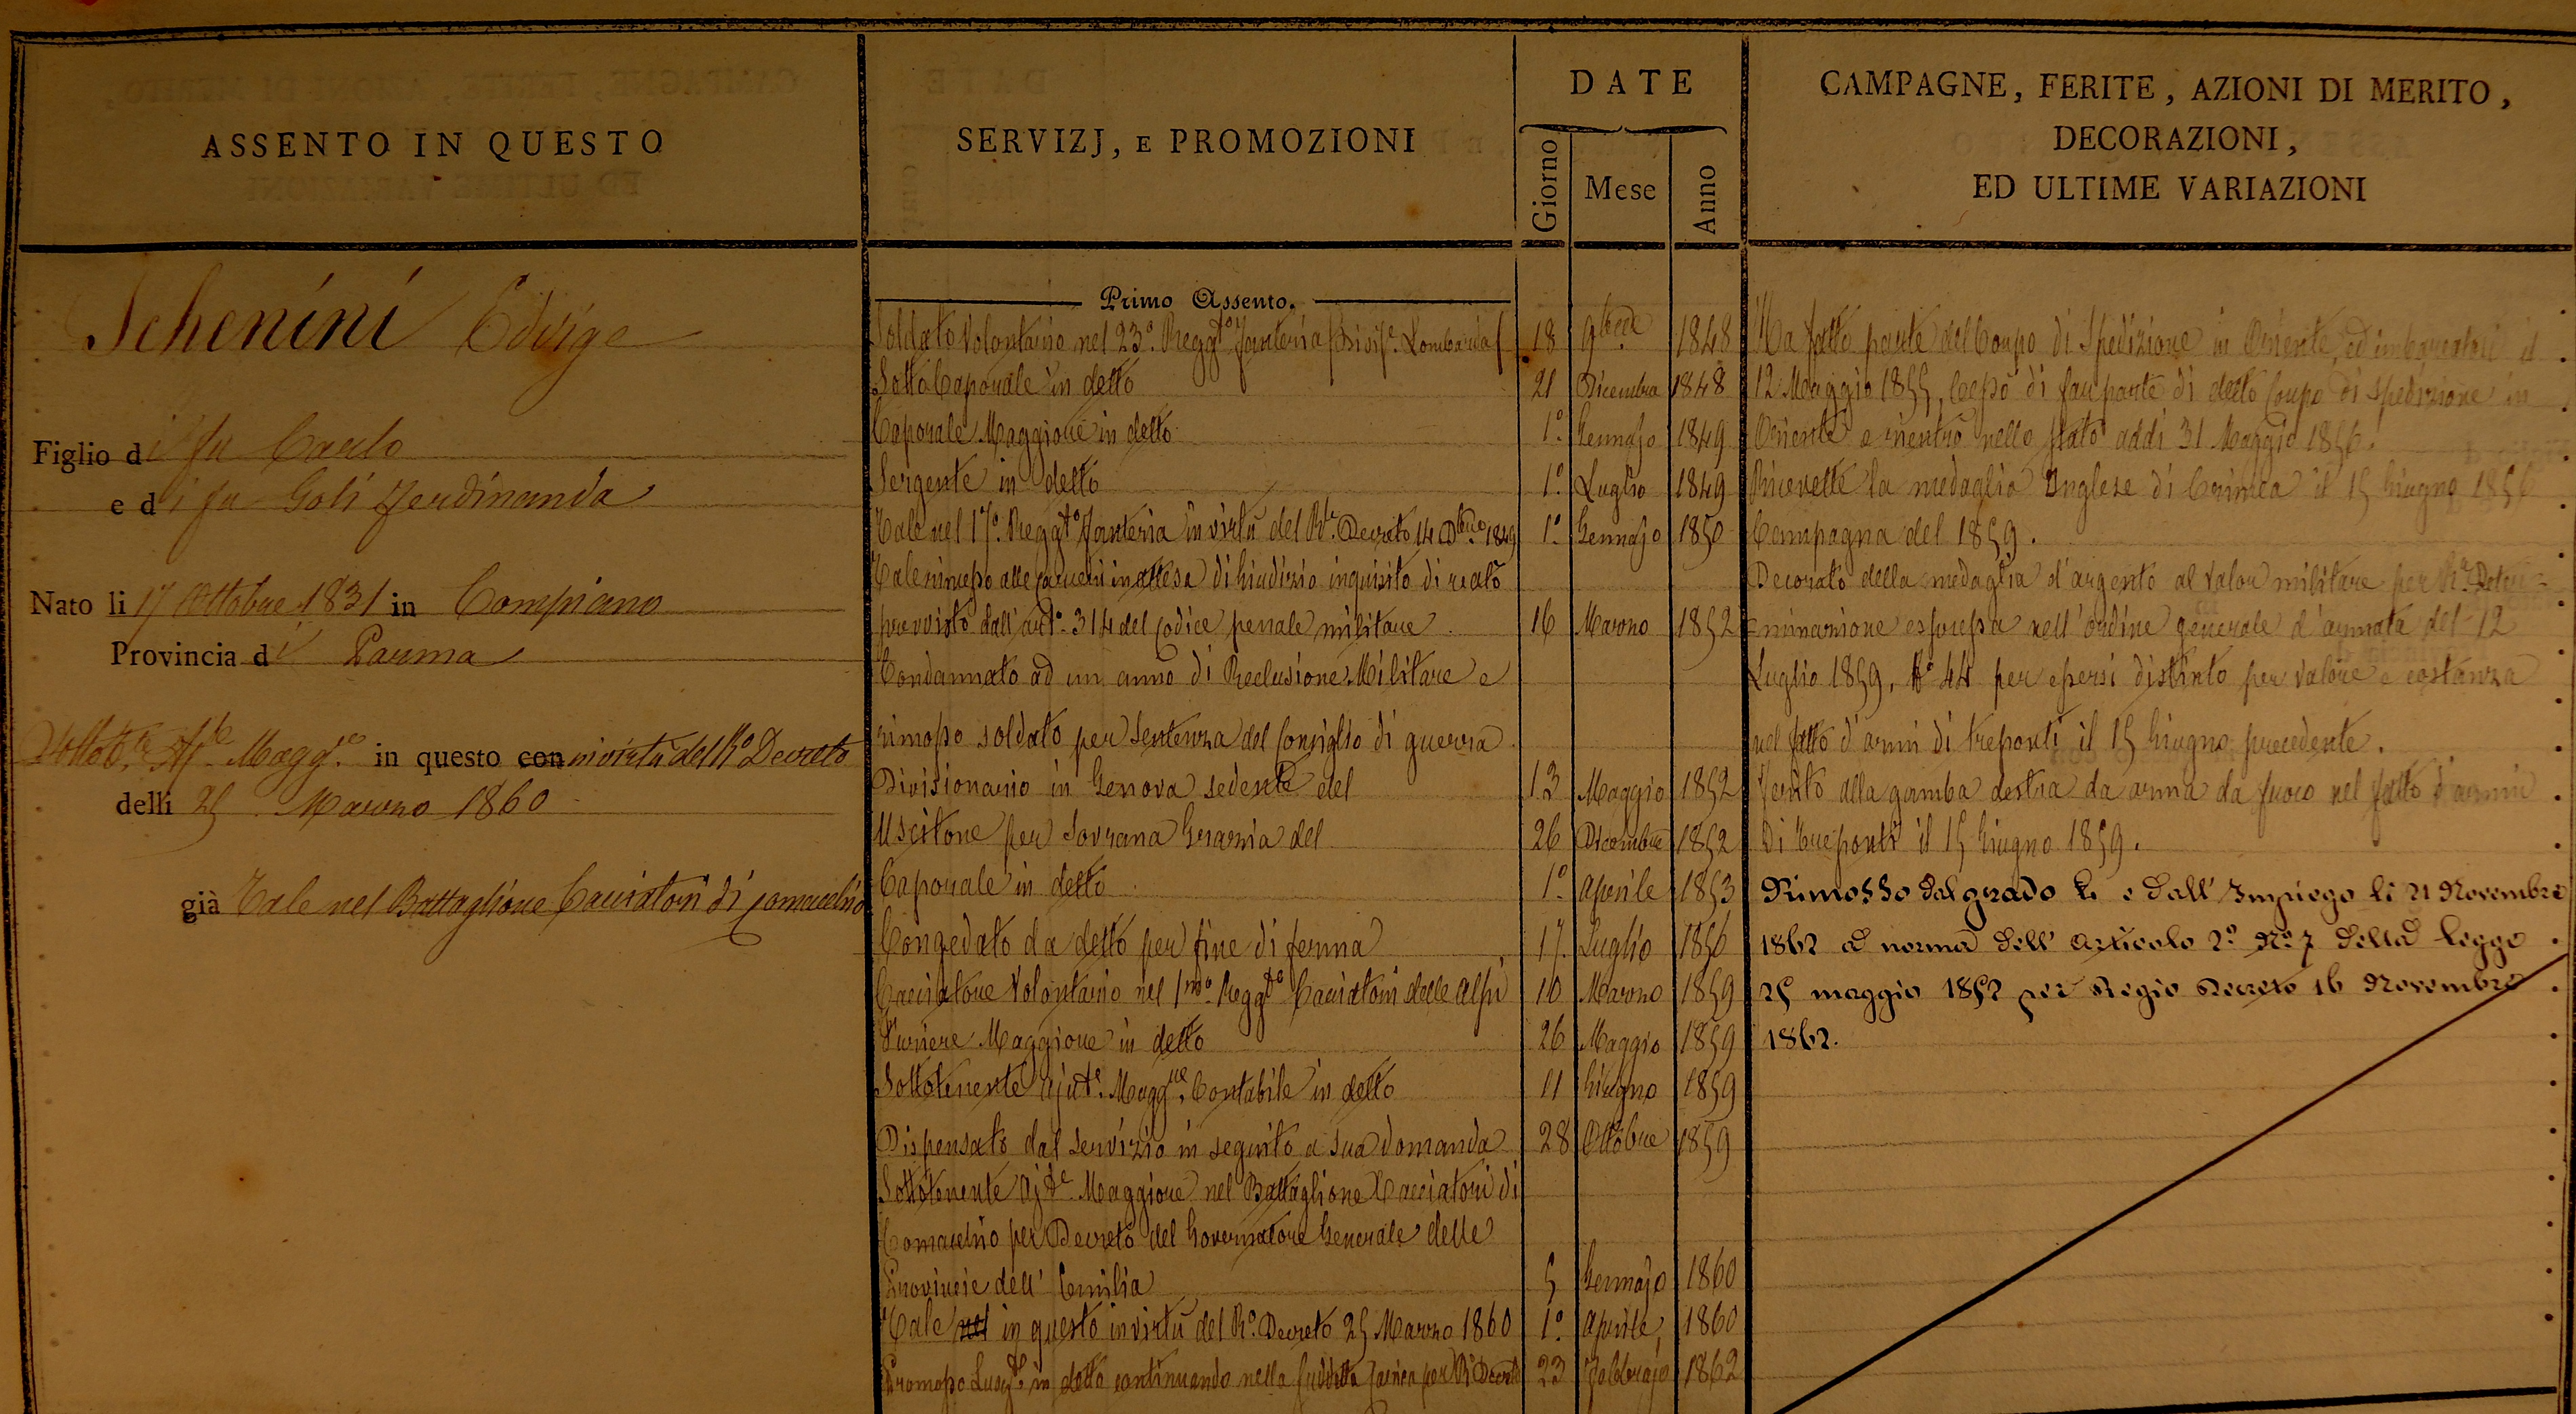 ASSENTO IN QUESTO
Schenini Edvige
Figlio di fu Carlo
e di fu Goli Ferdinanda
Nato li 17 Ottobre 1831 in Compiano
Provincia di Parma
Sottote Ajte Maggre in questo con in virtù del Ro Decreto
delli 25 Marzo 1860
già Tale nel Battaglione Cacciatori di Comacchio
SERVIZJ, E PROMOZIONI
DATE
Giorno Mese Anno
Primo Assento.
Soldato Volontario nel 23o Reggto Fanteria (Divise Lombarda) 18 9bre 1848
Sotto Caporale in detto 21 Dicembre 1848
Caporale Maggiore in detto 1o Gennajo 1849
Sergente in detto 1o Luglio 1849
Tale nel 17o Reggto Fanteria in virtù del Rle Decreto 14 Dbre 1849 1o Gennajo 1850
Tale rimesso alle carceri in attesa di Giudizio inquisito di reato
previsto dall'arto 314 del codice penale militare 16 Marzo 1852
Condannato ad un anno di Reclusione Militare e
rimosso soldato per Sentenza del Consiglio di guerra
Divisionario in Genova sedente del 13 Maggio 1852
Uscitone per Sovrana Grazia del 26 Dicembre 1852
Caporale in detto 1o Aprile 1853
Congedato da detto per fine di ferma 17 Luglio 1856
Cacciatore Volontario nel 1mo Reggto Cacciatori delle Alpi 10 Marzo 1859
Furiere Maggiore in detto 26 Maggio 1859
Sottotenente Ajute Maggre Contabile in detto 11 Giugno 1859
Dispensato dal servizio in seguito a sua domanda 28 Ottobre 1859
Sottotenente Ajte Maggiore nel Battaglione Cacciatori di
Comacchio per Decreto del Governatore Generale delle
Provincie dell' Emilia 5 Gennajo 1860
Tale nel in questo in virtù del Ro Decreto 25 Marzo 1860 1o Aprile 1860
Promosso Luogte in detto continuando nella suddetta carica per Ro Decreto 23 Febbrajo 1862
CAMPAGNE, FERITE, AZIONI DI MERITO,
DECORAZIONI,
ED ULTIME VARIAZIONI
Ha fatto parte del Corpo di Spedizione in Oriente, ed imbarcatosi il
12 Maggio 1855, Cessò di far parte di detto Corpo di spedizione in
Oriente e rientrò nello stato addi 31 Maggio 1856.
Ricevette la medaglia Inglese di Crimea il 15 Giugno 1856
Campagna del 1859.
Decorato della medaglia d'argento al Valor militare per Ra Deter-
minazione espressa nell'ordine generale d'armata del 12
Luglio 1859, No 44 per essersi distinto per valore e costanza
nel fatto d'armi di Treponti il 15 Giugno precedente.
Ferito alla gamba destra da arma da fuoco nel fatto d'armi
di Treponti il 15 Giugno 1859.
Rimosso dal grado e dall' Impiego li 21 Novembre
1862 a norma dell' Articolo 2o No 7 della Legge
25 maggio 1852 per Regio Decreto 16 Novembre
1862.